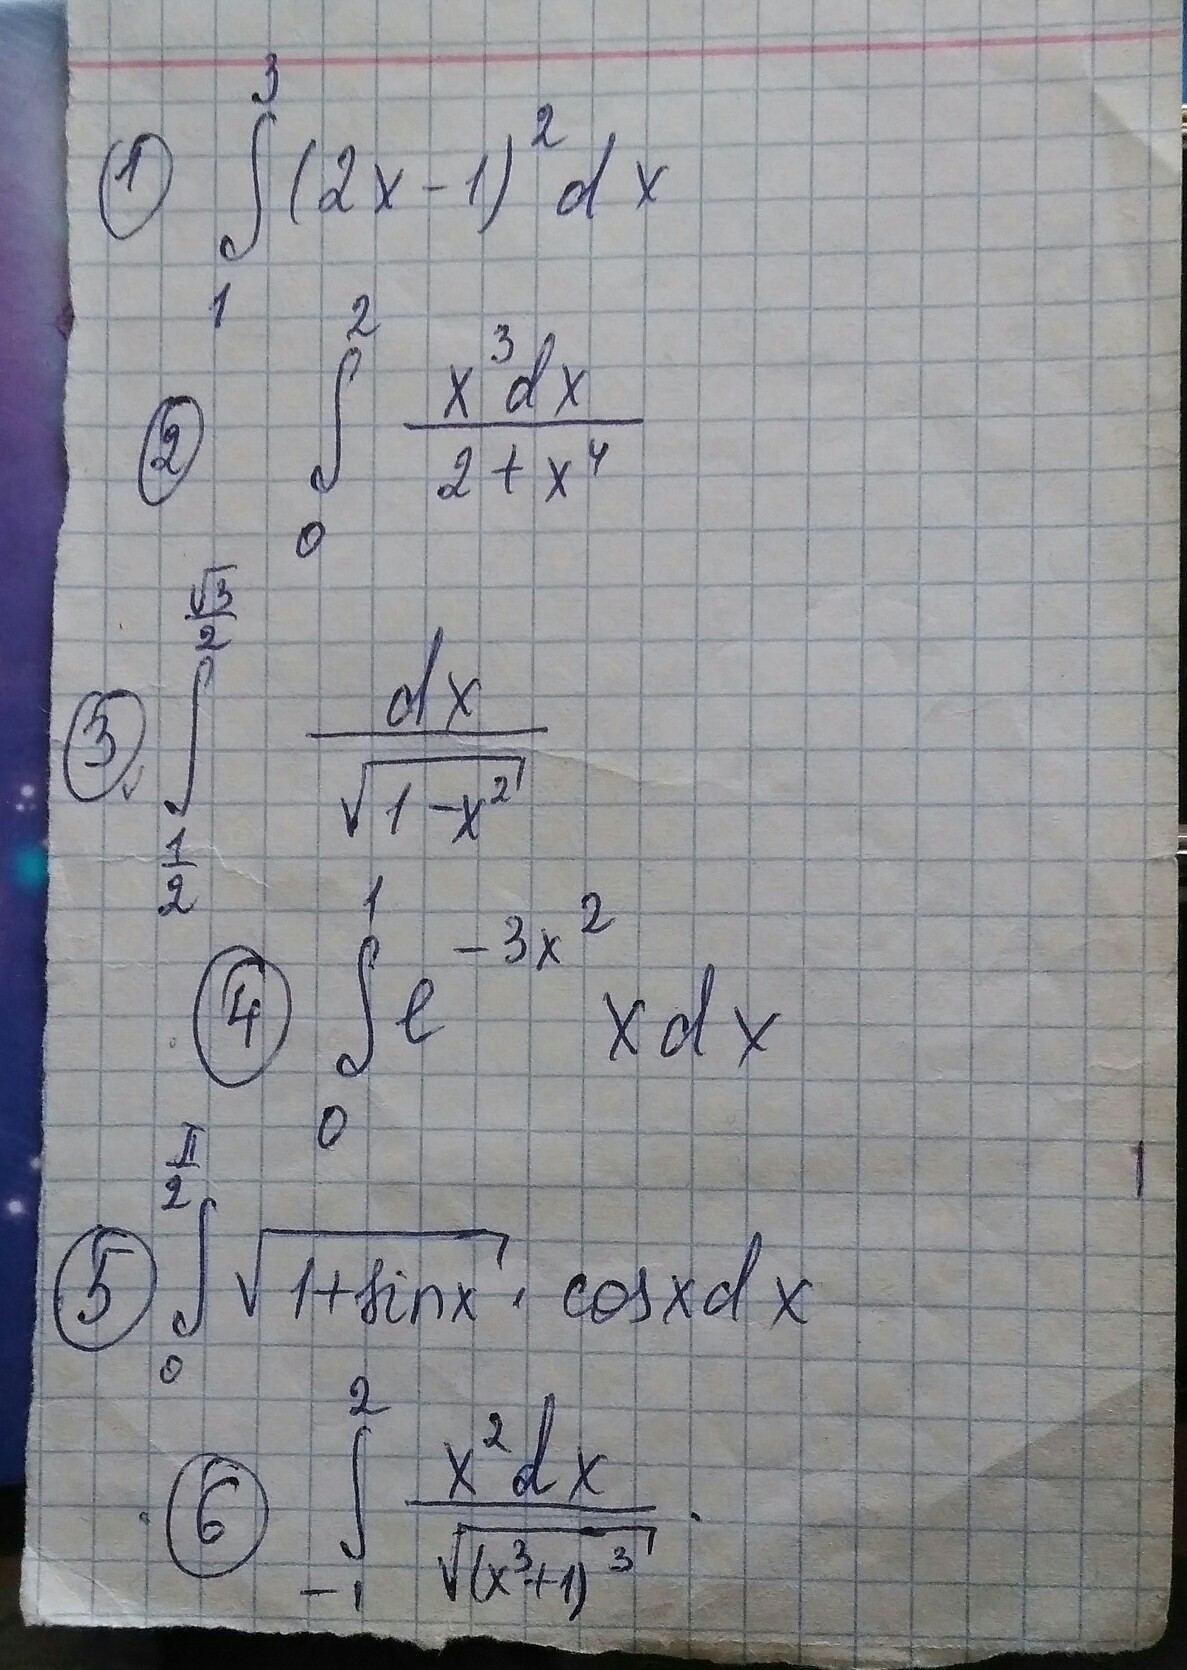 ① ∫₁³ (2x - 1)² dx
② ∫₀² \frac{x³dx}{2 + x⁴}
③ ∫_{\frac{1}{2}}^{\frac{√3}{2}} \frac{dx}{\sqrt{1 - x²}}
④ ∫₀¹ e^{-3x²} xdx
⑤ ∫₀^{\frac{π}{2}} \sqrt{1 + sinx} · cosxdx
⑥ ∫₋₁² \frac{x²dx}{\sqrt{(x³+1)³}}.